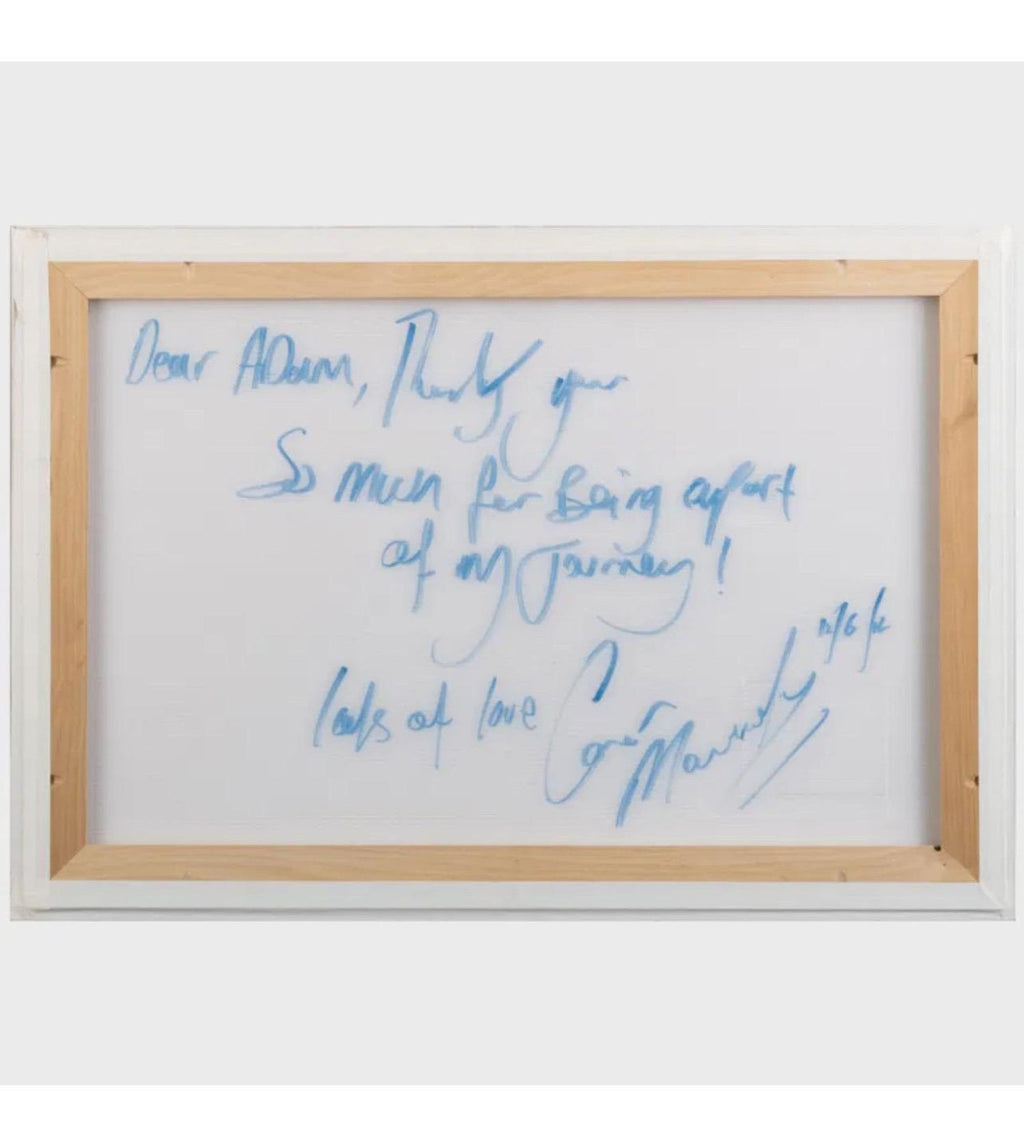 Dear ADam, Thank you
So much for Being apart
of my Journey!
lots of love Conor Mccreedy